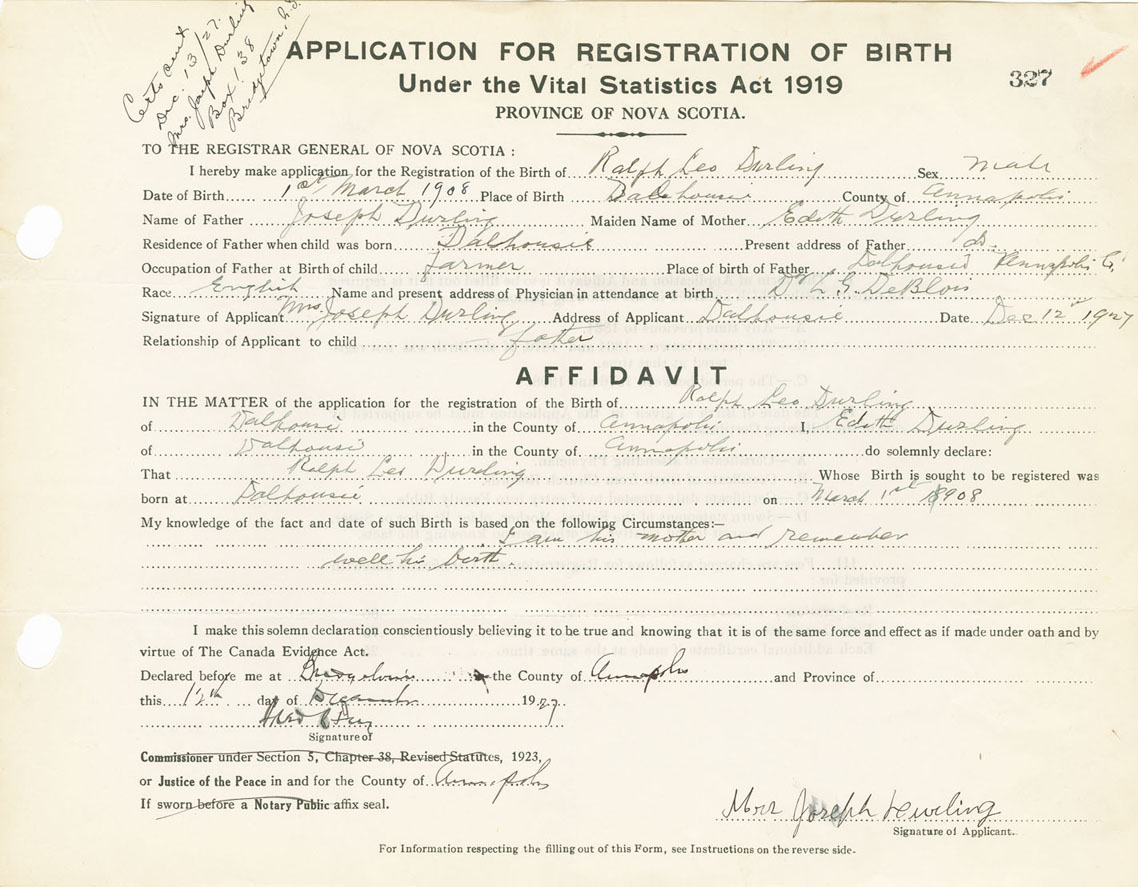 Certs sent
Dec. 13/27.
Mrs. Joseph Durling
Box 138
Bridgetown, N.S.
APPLICATION FOR REGISTRATION OF BIRTH
Under the Vital Statistics Act 1919
327
PROVINCE OF NOVA SCOTIA.
TO THE REGISTRAR GENERAL OF NOVA SCOTIA :
I hereby make application for the Registration of the Birth of Ralph Leo Durling Sex Male
Date of Birth 1st March 1908 Place of Birth Dalhousie County of Annapolis
Name of Father Joseph Durling Maiden Name of Mother Edith Durling
Residence of Father when child was born Dalhousie Present address of Father do.
Occupation of Father at Birth of child farmer Place of birth of Father Dalhousie Annapolis Co.
Race English Name and present address of Physician in attendance at birth Dr L. S. DeBlois
Signature of Applicant Mrs. Joseph Durling Address of Applicant Dalhousie Date Dec 12th 1927
Relationship of Applicant to child father
AFFIDAVIT
IN THE MATTER of the application for the registration of the Birth of Ralph Leo Durling
of Dalhousie in the County of Annapolis I, Edith Durling
of Dalhousie in the County of Annapolis do solemnly declare:
That Ralph Leo Durling Whose Birth is sought to be registered was
born at Dalhousie on March 1st 1908
My knowledge of the fact and date of such Birth is based on the following Circumstances:—
I am his mother and remember
well his birth.
I make this solemn declaration conscientiously believing it to be true and knowing that it is of the same force and effect as if made under oath and by
virtue of The Canada Evidence Act.
Declared before me at Bridgetown the County of Annapolis and Province of
this 12th day of December 1927
Signature of
Commissioner under Section 5, Chapter 38, Revised Statutes, 1923,
or Justice of the Peace in and for the County of Annapolis
If sworn before a Notary Public affix seal.
Mrs Joseph Durling
Signature of Applicant.
For Information respecting the filling out of this Form, see Instructions on the reverse side.